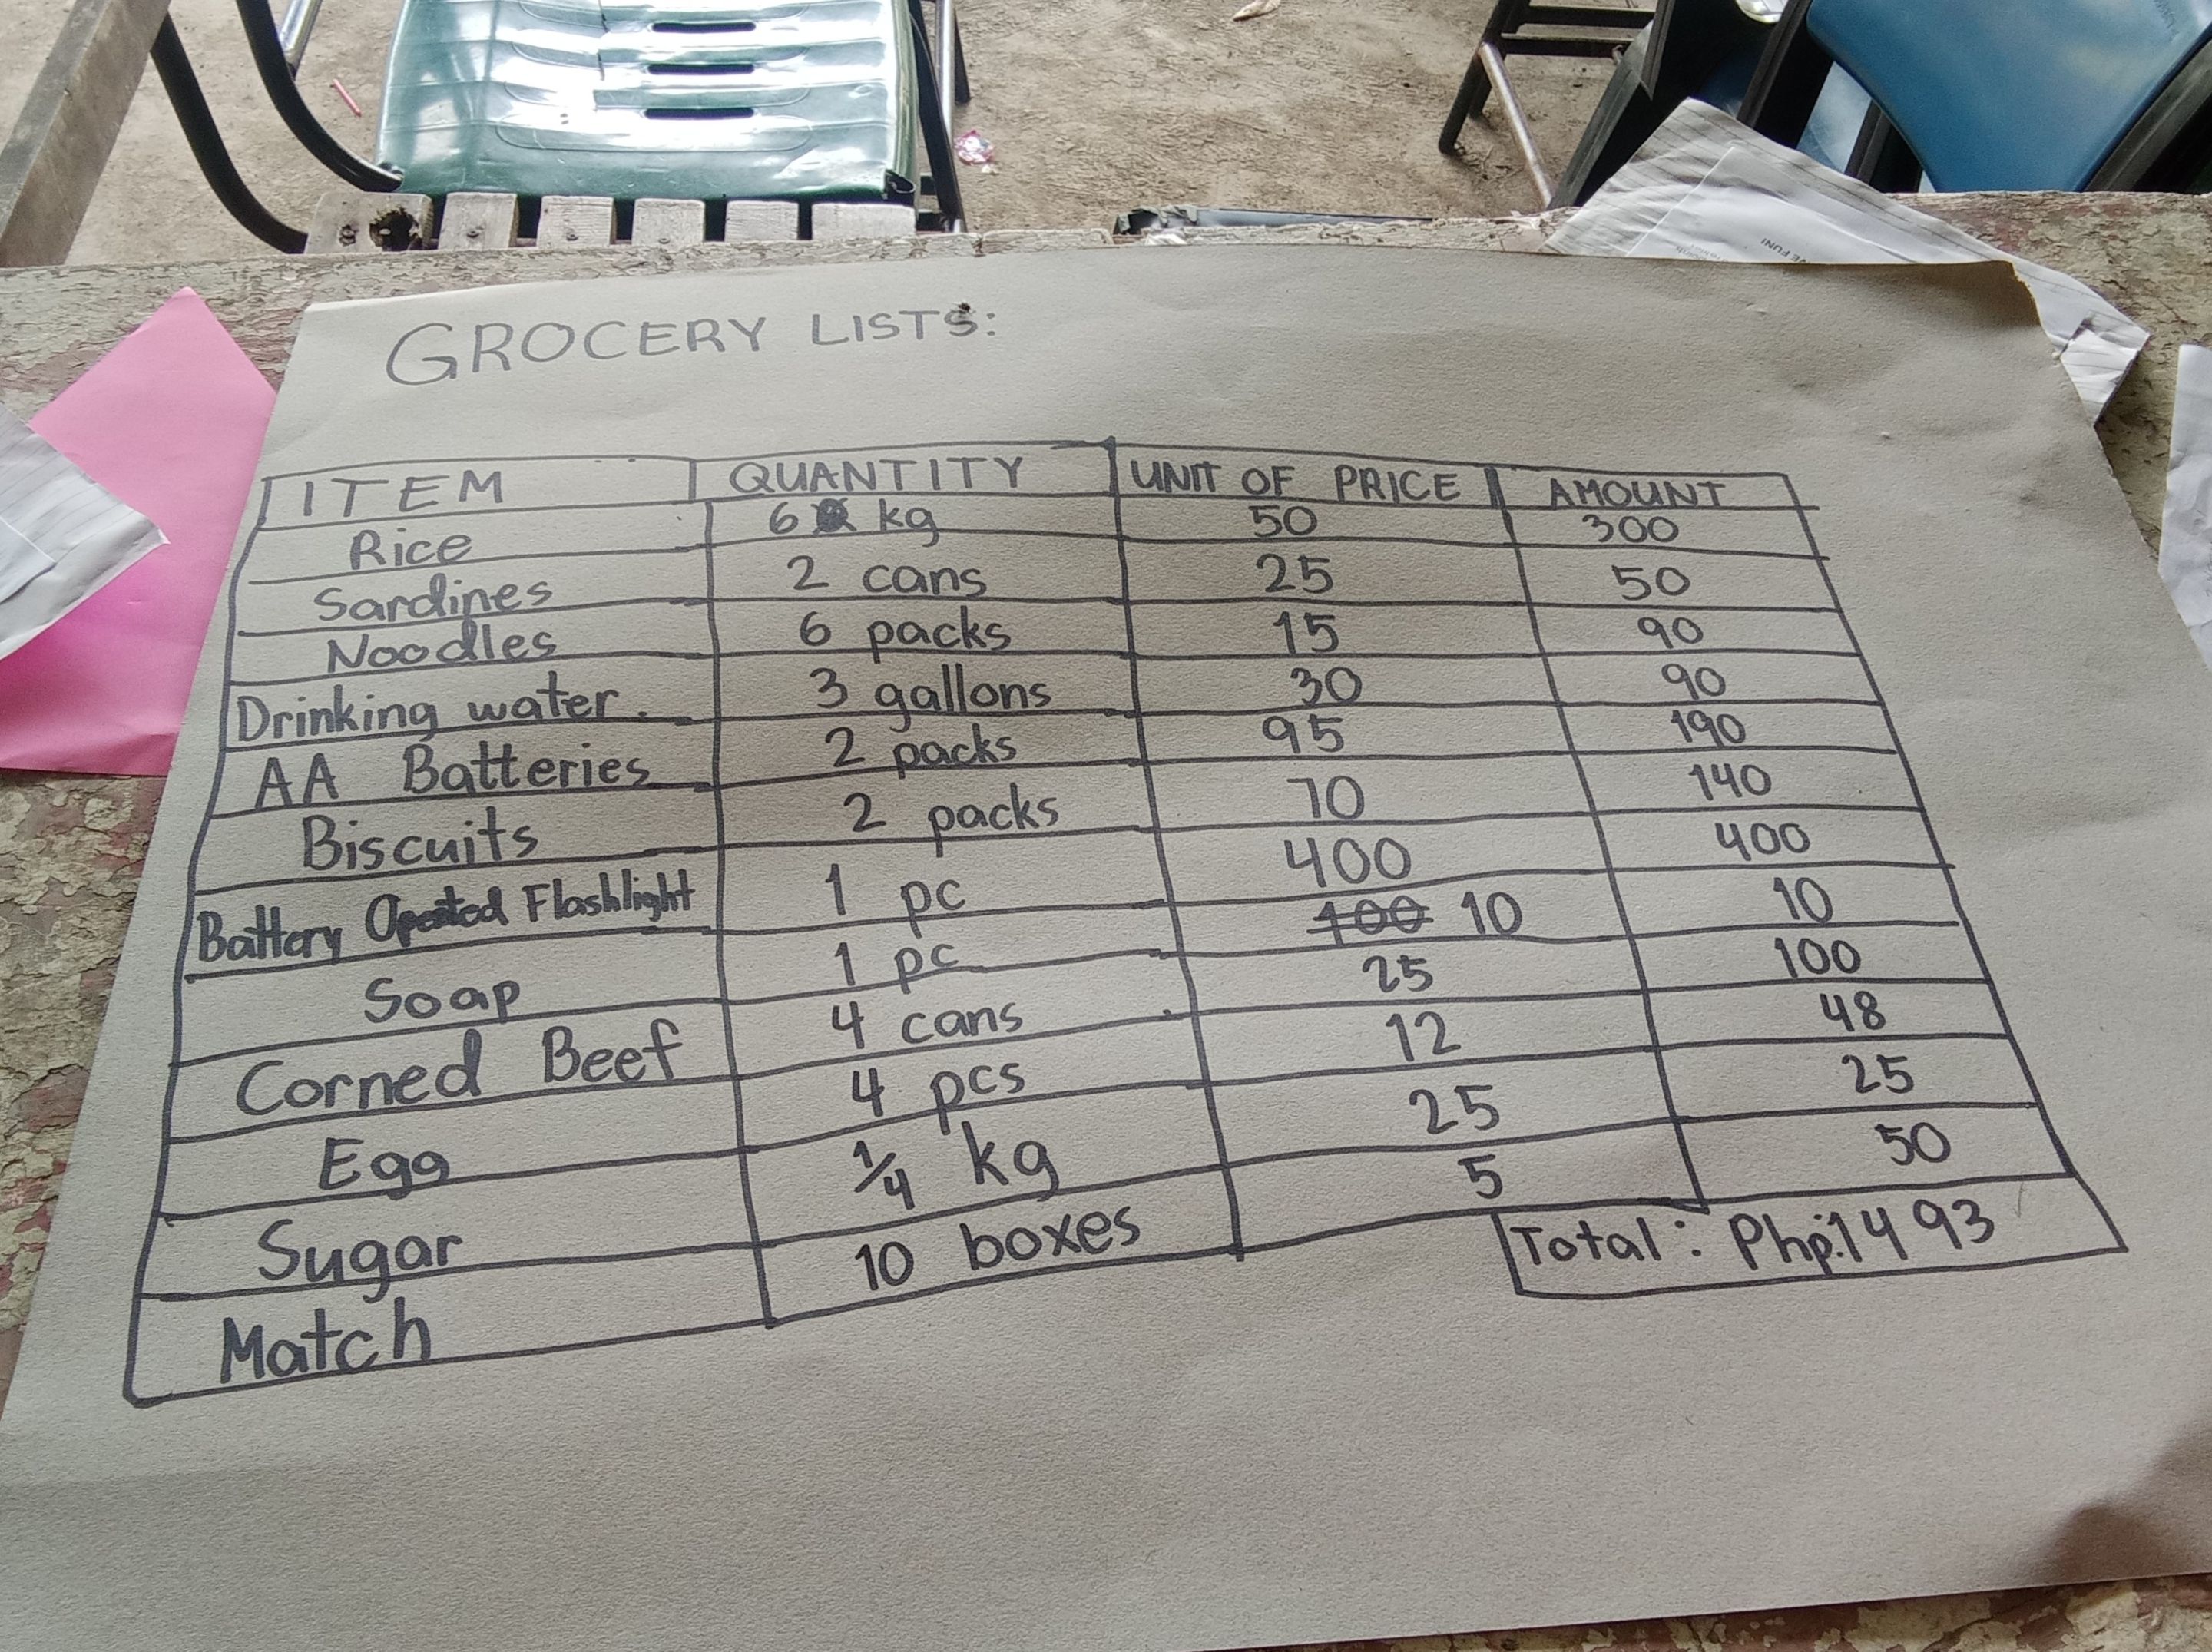 GROCERY LISTS:
ITEM QUANTITY UNIT OF PRICE AMOUNT
Rice 6 kg 50 300
Sardines 2 cans 25 50
Noodles 6 packs 15 90
Drinking water. 3 gallons 30 90
AA Batteries 2 packs 95 190
Biscuits 2 packs 70 140
Battery Opeated Flashlight 1 pc 400 400
Soap 1 pc 100 10 10
Corned Beef 4 cans 25 100
Egg 4 pcs 12 48
Sugar 1/4 kg 25 25
Match 10 boxes 5 50
Total: Php.1493